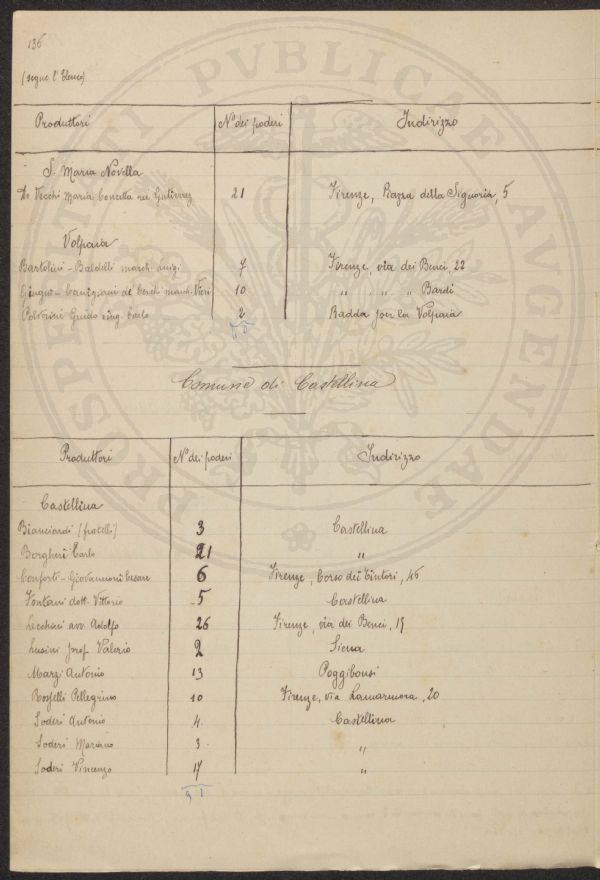 136
(segue l'Elenco)
Produttori N° dei poderi Indirizzo
S. Maria Novella
De Vecchi Maria Concetta nei Gutierrez 21 Firenze, Piazza della Signoria, 5
Volpaia
Bartolini - Baldelli march. 7 Firenze, via dei Benci, 22
Giugni - Canigiani de' Cerchi march. Neri 10 „ „ „ Bardi
Guido ing. Carlo 2 Radda per la Volpaia
Comune di Castellina
Produttori N° dei poderi Indirizzo
Castellina
Bianciardi (fratelli) 3 Castellina
Borgheri Carlo 21 „
Conforti - Giovannoni Cesare 6 Firenze, Corso dei Tintori, 46
Fontani dott. Vittorio 5 Castellina
Lecchini avv. Adolfo 26 Firenze, via dei Benci, 15
Lusini prof. Valerio 2 Siena
Marzi Antonio 13 Poggibonsi
Rosselli Pellegrino 10 Firenze, via Lamarmora, 20
Soderi Antonio 4 Castellina
Soderi Mariano 3 „
Soderi Vincenzo 17 „
PROSPERITATI PVBLICAE AVGENDAE